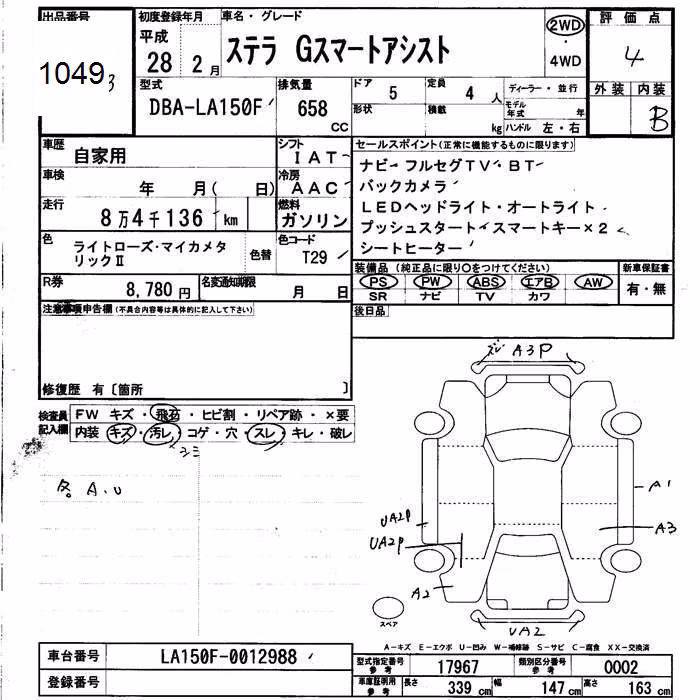 出品番号
10493
初度登録年月
平成
28 2月
車名・グレード
ステラ Gスマートアシスト
2WD
4WD
評価点
4
外装 内装
B
型式
DBA-LA150F
排気量
658
CC
ドア 5
定員 4 人
形状
積載 kg
ディーラー・並行
モデル年式 年
ハンドル 左・右
車歴 自家用
車検 年 月( 日)
走行 8万4千136 km
色 ライトローズ・マイカメタ
リックⅡ
色替
シフト IAT
冷房 AAC
燃料 ガソリン
色コード T29
R券 8,780円
名変通知期限 月 日
セールスポイント(正常に機能するものに限ります)
ナビ・フルセグTV・BT
バックカメラ
LEDヘッドライト・オートライト
プッシュスタート・スマートキー×2
シートヒーター
装備品(純正品に限り〇をつけてください)
PS PW ABS エアB AW
SR ナビ TV カワ
新車保証書
有・無
後日品
注意事項申告欄(不具合内容等は具体的に記入して下さい)
修復歴 有〔箇所 〕
検査員
記入欄
FW キズ・飛石・ヒビ割・リペア跡・×要
内装 キズ・汚レ・コゲ・穴・スレ・キレ・破レ
シミ
各A.U
ズレ A3P
A1
UA2P
UA2P
A3
A2
UA2
スペア
A-キズ E-エクボ U-凹み W-補修跡 S-サビ C-腐食 XX-交換済
車台番号 LA150F-0012988
登録番号
型式指定番号
参考
17967
類別区分番号
参考
0002
車庫証明用
参考
長さ 339 cm 幅 147 cm 高さ 163 cm